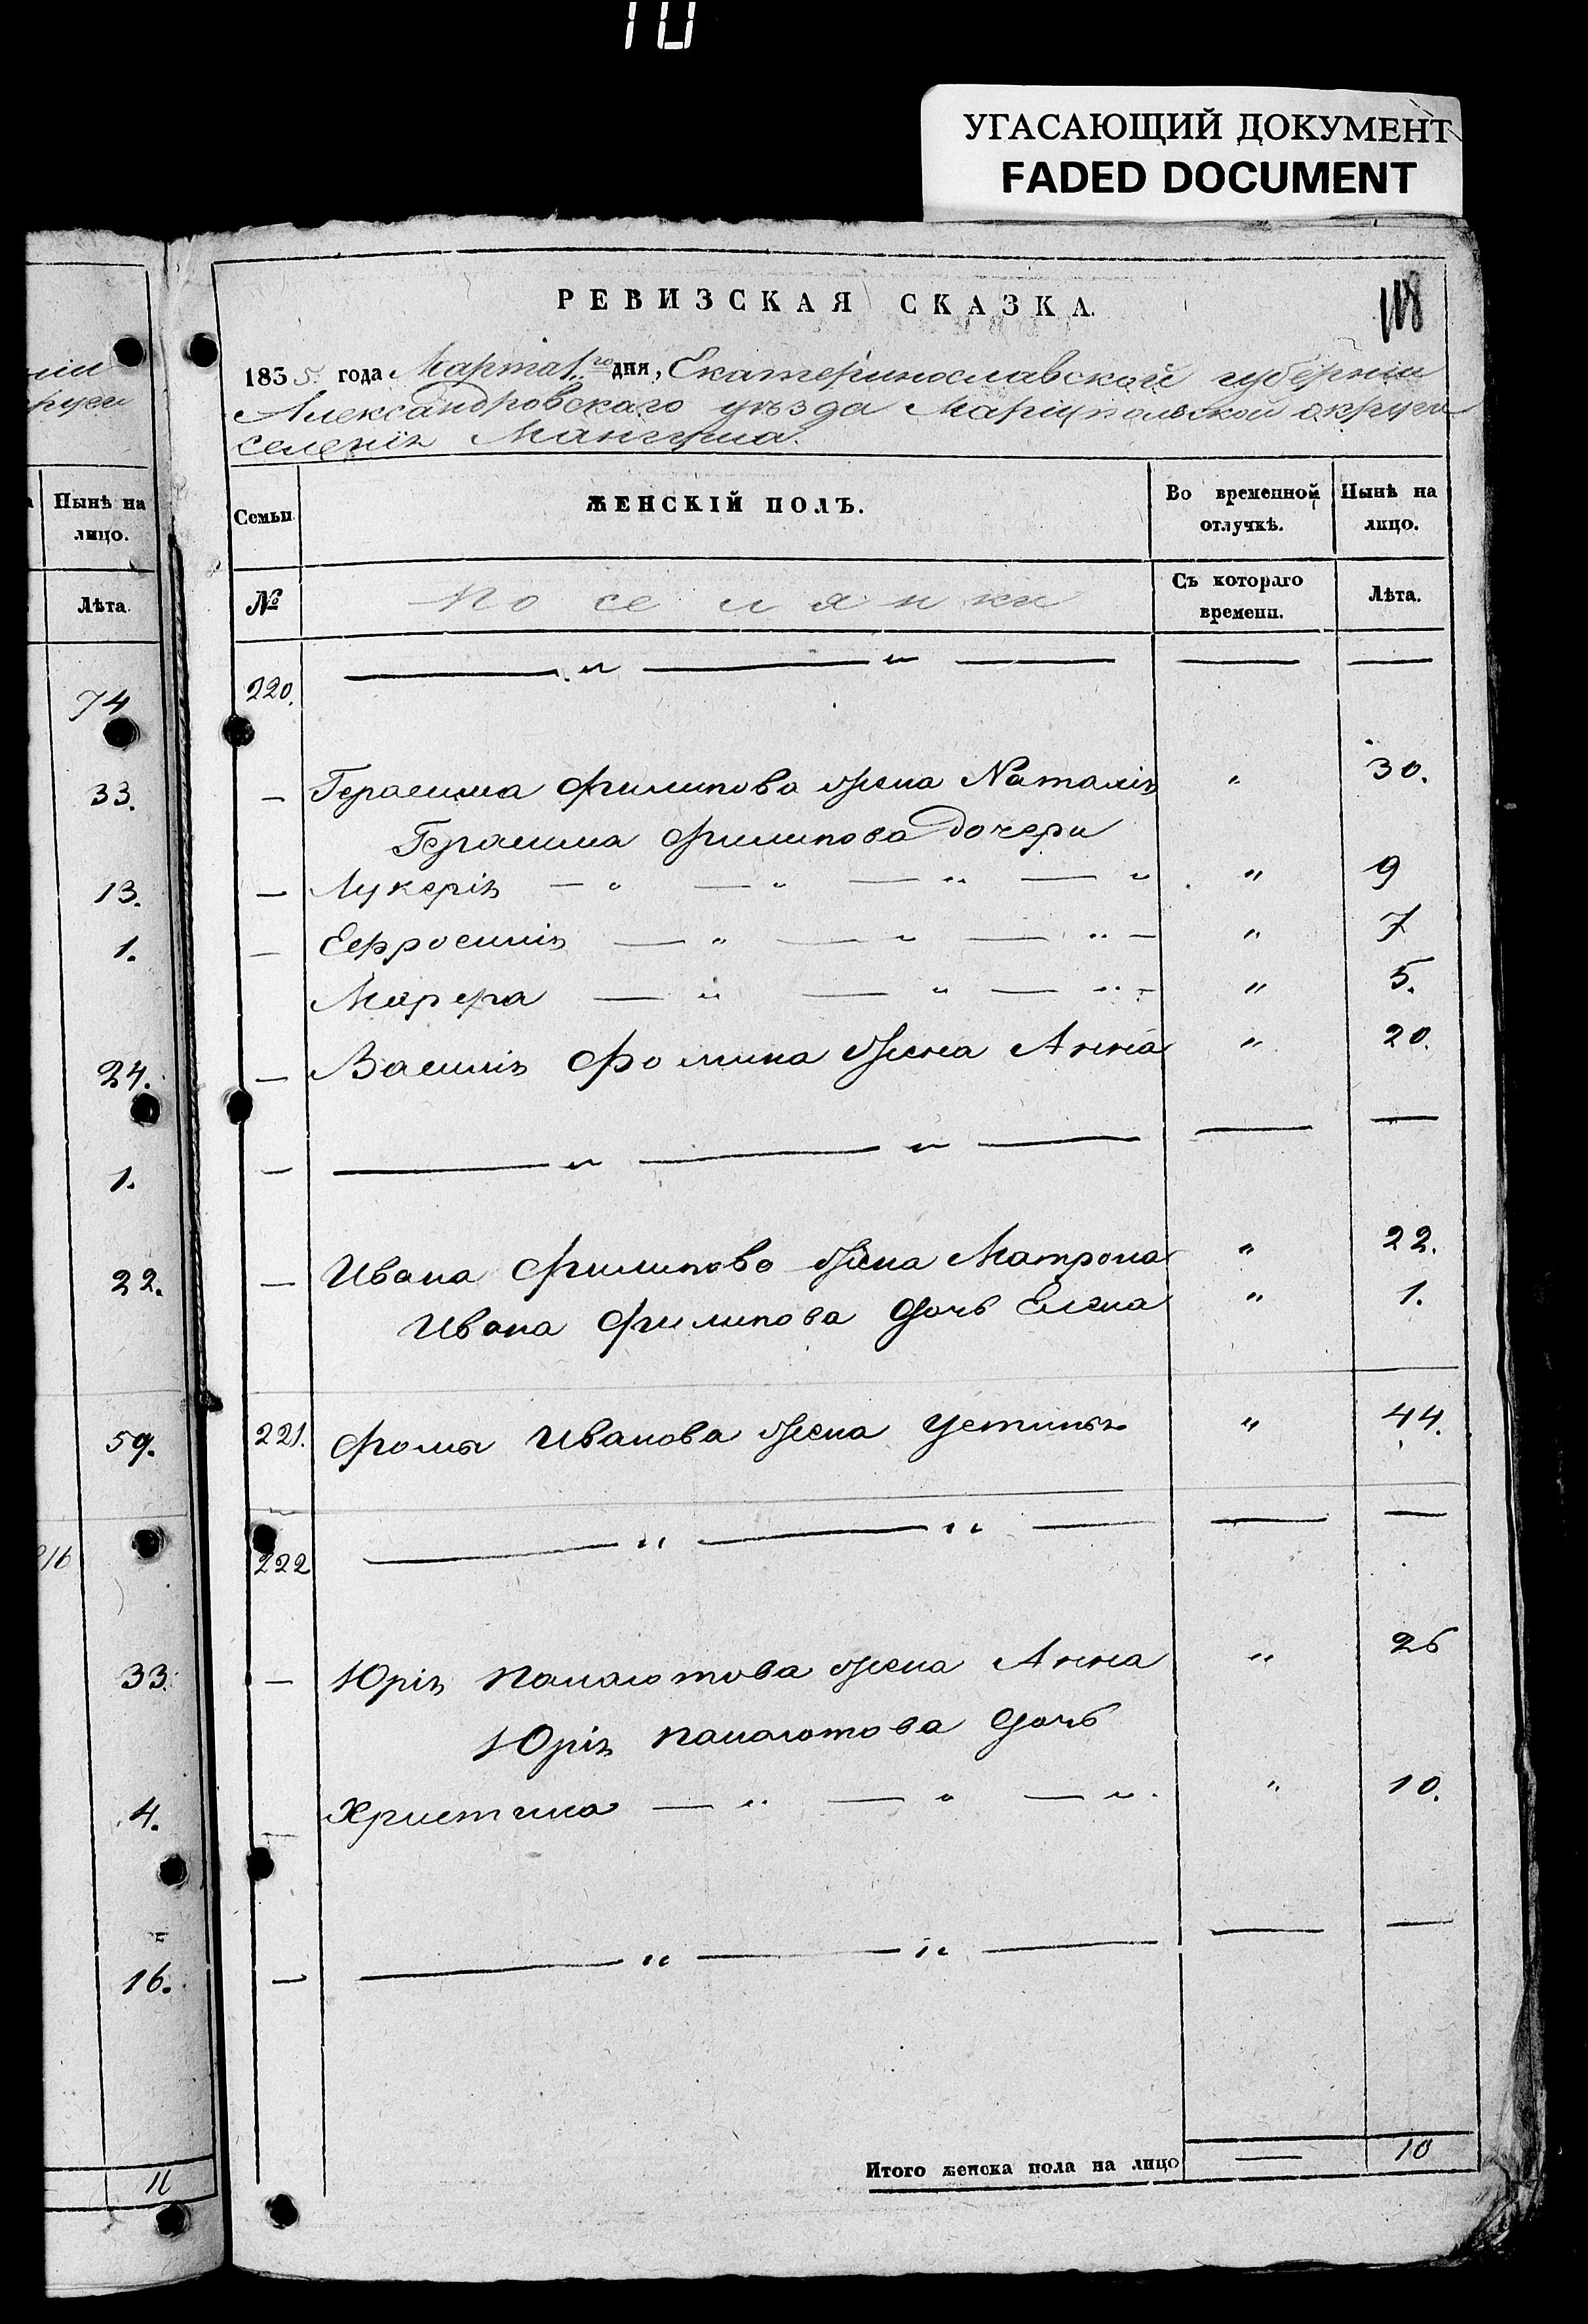 10
УГАСАЮЩИЙ ДОКУМЕНТ
FADED DOCUMENT
РЕВИЗСКАЯ СКАЗКА.
118
1835 года Марта 1го дня, Екатеринославской губерніи
Александровскаго уѣзда Маріупольской округи
селенія Мангуша.
Семьи
ЖЕНСКІЙ ПОЛЪ.
Во временной отлучкѣ.
Нынѣ на лицо.
№
Поселянки
Съ котораго времени.
Лѣта.
220. — „ — „ — — —
— Герасима Филипова жена Наталія „ 30.
Герасима Филипова дочери
— Лукерія — „ — „ — „ — „ „ 9
— Ефросинія — „ — „ — „ — „ 7
Марфа — „ — „ — „ — „ 5.
— Василія Фомина жена Анна „ 20.
— — „ — „ — — —
— Ивана Филипова жена Матрона „ 22.
Ивана Филипова дочь Елена „ 1.
221. Фомы Иванова жена Устинья „ 44.
222 — „ — „ — — —
— Юрія Панаіотова жена Анна „ 26
Юрія Панаіотова дочь
— Христина — „ — „ — „ „ 10.
— — „ — „ — — —
Итого женска пола на лицо — 10
ніи
округи
Нынѣ на
лицо.
Лѣта.
74
33.
13.
1.
24.
1.
22.
59.
216
33.
4.
16.
11